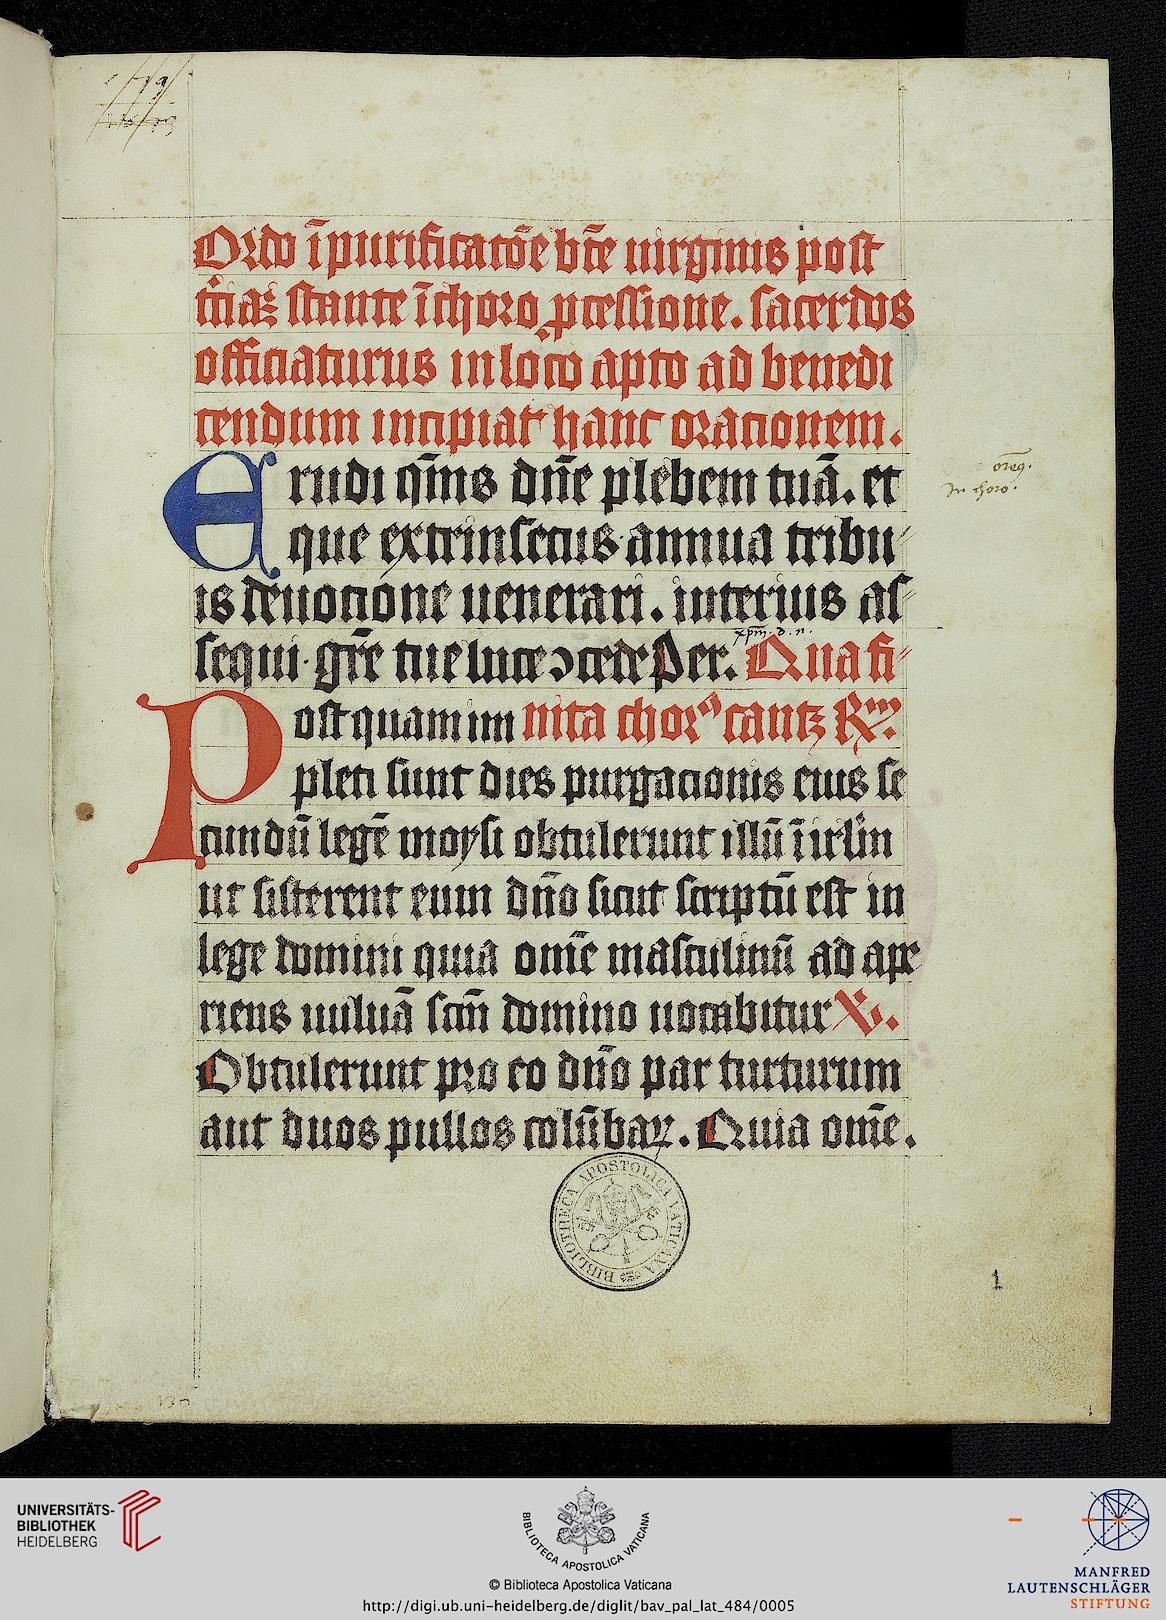 Ordo ī purificatōe bt̄e uirginis post
t̄ciaꝫ stante ī choro ꝓcessione. sacerdos
officiaturus in loco apto ad benedi
cendum incipiat hanc orationem.
Erudi qm̄s dn̄e plebem tuā. et
que extrinsecus annua tribu
is deuotione uenerari. interius as
xp̄m. d. n.
sequi gr̄e tue luce ↄcede Per. Qua fi
Postquam im nita chorꝰ cantꝫ Rm.
pleti sunt dies purgationis eius se
cundū legē moysi obtulerunt illū ī irl̄m
ut sisterent eum dn̄o sicut scriptū est in
lege domini quia om̄e masculinū ad ape
riens uuluā scm̄ domino uocabitur V.
Obtulerunt pro eo dn̄o par turturum
aut duos pullos colūbaꝝ. Quia om̄e.
In choro.
BIBLIOTHECA APOSTOLICA VATICANA
1
UNIVERSITÄTS-
BIBLIOTHEK
HEIDELBERG
BIBLIOTECA APOSTOLICA VATICANA
© Biblioteca Apostolica Vaticana
http://digi.ub.uni-heidelberg.de/diglit/bav_pal_lat_484/0005
MANFRED
LAUTENSCHLÄGER
STIFTUNG